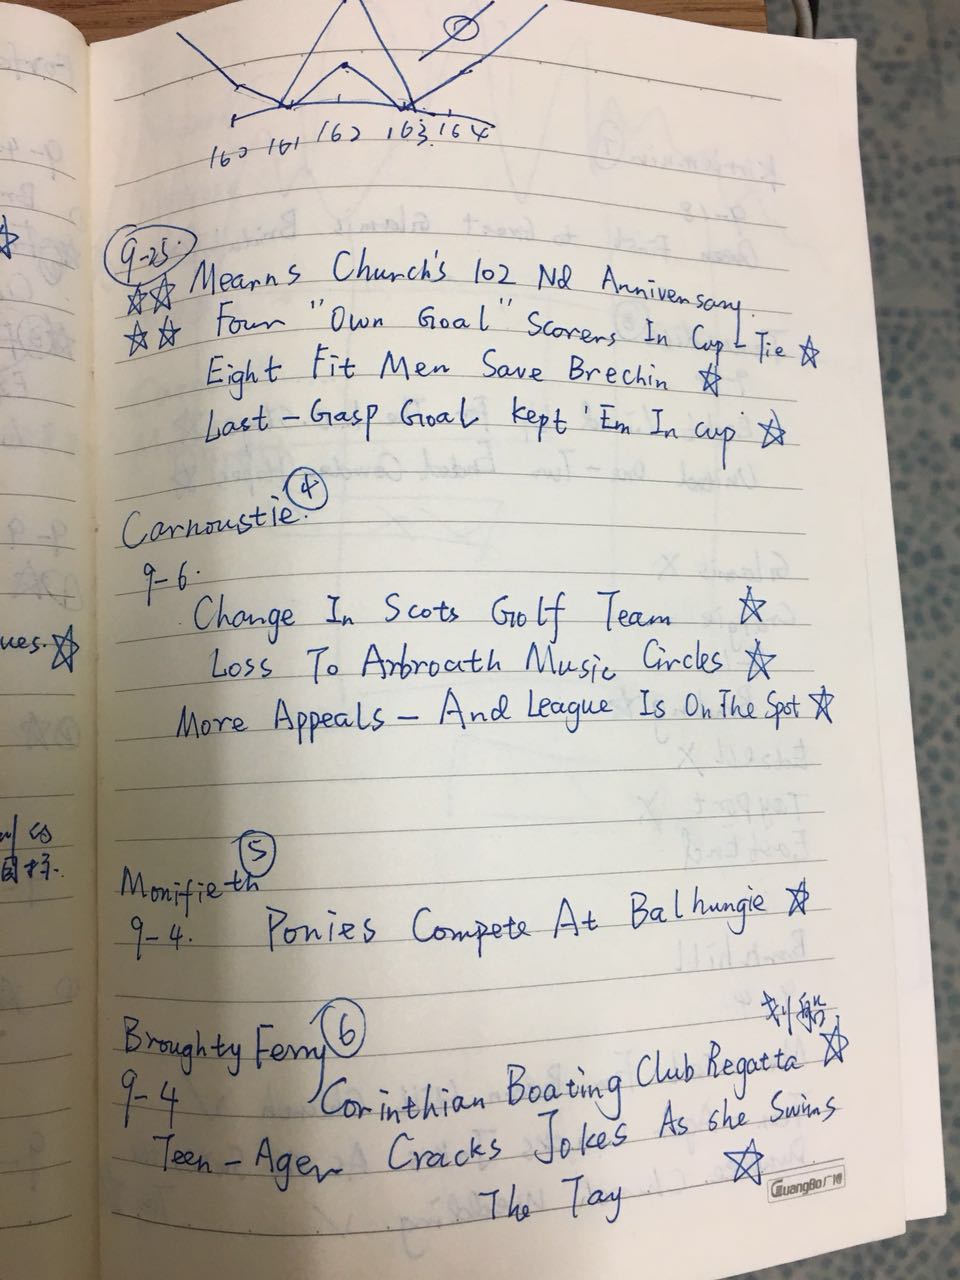 160 161 162 163 164
9-25.
☆☆ Mearns Church's 102 Nd Anniversary.
☆☆ Four "Own Goal" Scorers In Cup-Tie ☆
Eight Fit Men Save Brechin ☆
Last-Gasp Goal kept 'Em In cup ☆
Carnoustie. ④
9-6.
Change In Scots Golf Team ☆
Loss To Arbroath Music Circles ☆
More Appeals - And League Is On The Spot ☆
Monifieth ⑤
9-4. Ponies Compete At Balhungie ☆
Broughty Ferry ⑥
划船
9-4 Corinthian Boating Club Regatta ☆
Teen-Ager Cracks Jokes As she Swims
The Tay ☆
GuangBo广博